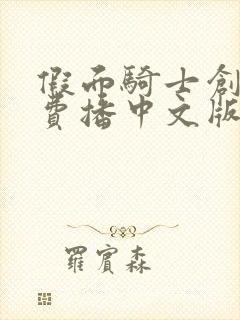 假面騎士創
費播中文版
羅賓森